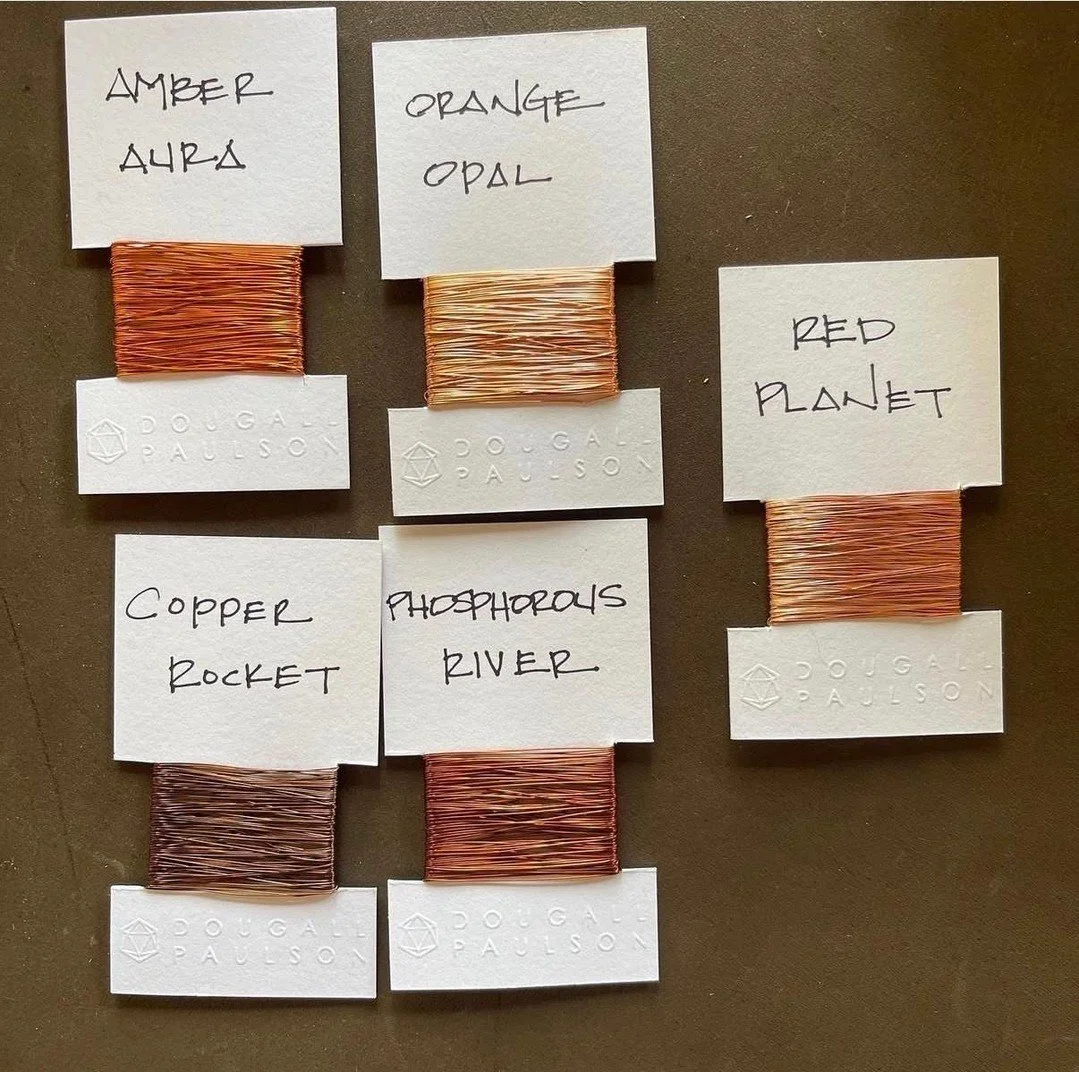 AMBER
AURA
DOUGALL
PAULSON
ORANGE
OPAL
DOUGALL
PAULSON
RED
PLANET
DOUGALL
PAULSON
COPPER
ROCKET
DOUGALL
PAULSON
PHOSPHOROUS
RIVER
DOUGALL
PAULSON